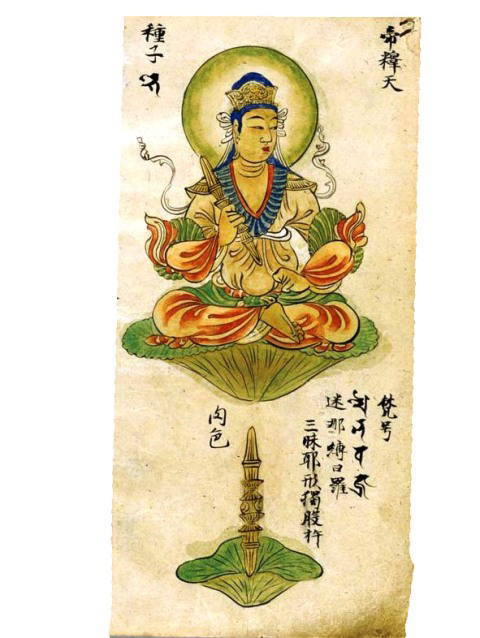 帝釋天
種子
梵号
迷那縛日羅
三昧耶形獨股杵
肉色